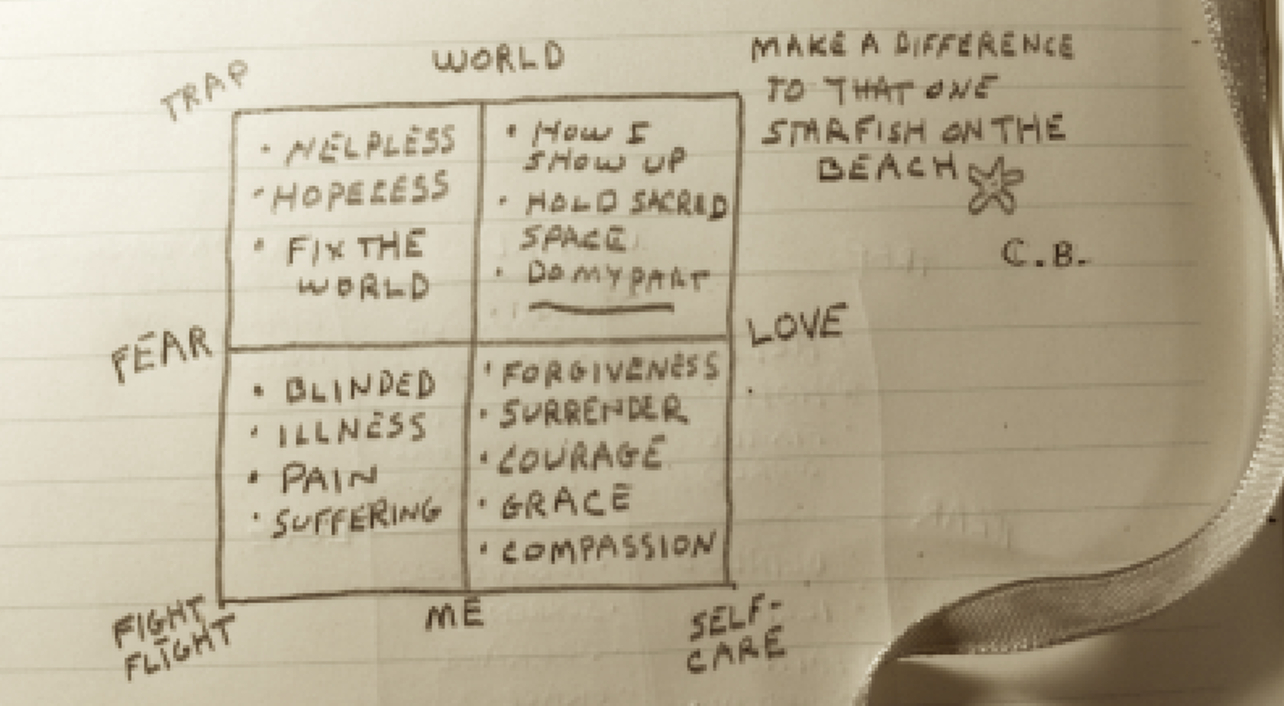 WORLD
TRAP
MAKE A DIFFERENCE
TO THAT ONE
STARFISH ON THE
BEACH
C.B.
• HELPLESS
• HOPELESS
• FIX THE
WORLD
• HOW I
SHOW UP
• HOLD SACRED
SPACE
• DO MY PART
FEAR
LOVE
• BLINDED
• ILLNESS
• PAIN
• SUFFERING
• FORGIVENESS
• SURRENDER
• COURAGE
• GRACE
• COMPASSION
FIGHT
FLIGHT
ME
SELF-
CARE